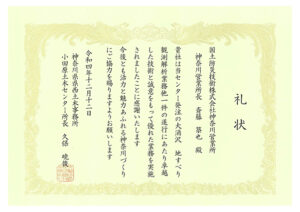 礼状
国土防災技術株式会社 神奈川営業所
神奈川営業所長 斎藤 築也 殿
貴社は当センター発注の大涌沢 地すべり
観測解析業務他一件の遂行にあたり卓越
した技術と誠意をもって優れた業務を実施
されましたことに感謝いたします
今後とも活力と魅力あふれる神奈川づくり
にご協力を賜りますようお願いします
令和四年十二月十二日
神奈川県県西土木事務所
小田原土木センター所長 久保 徹